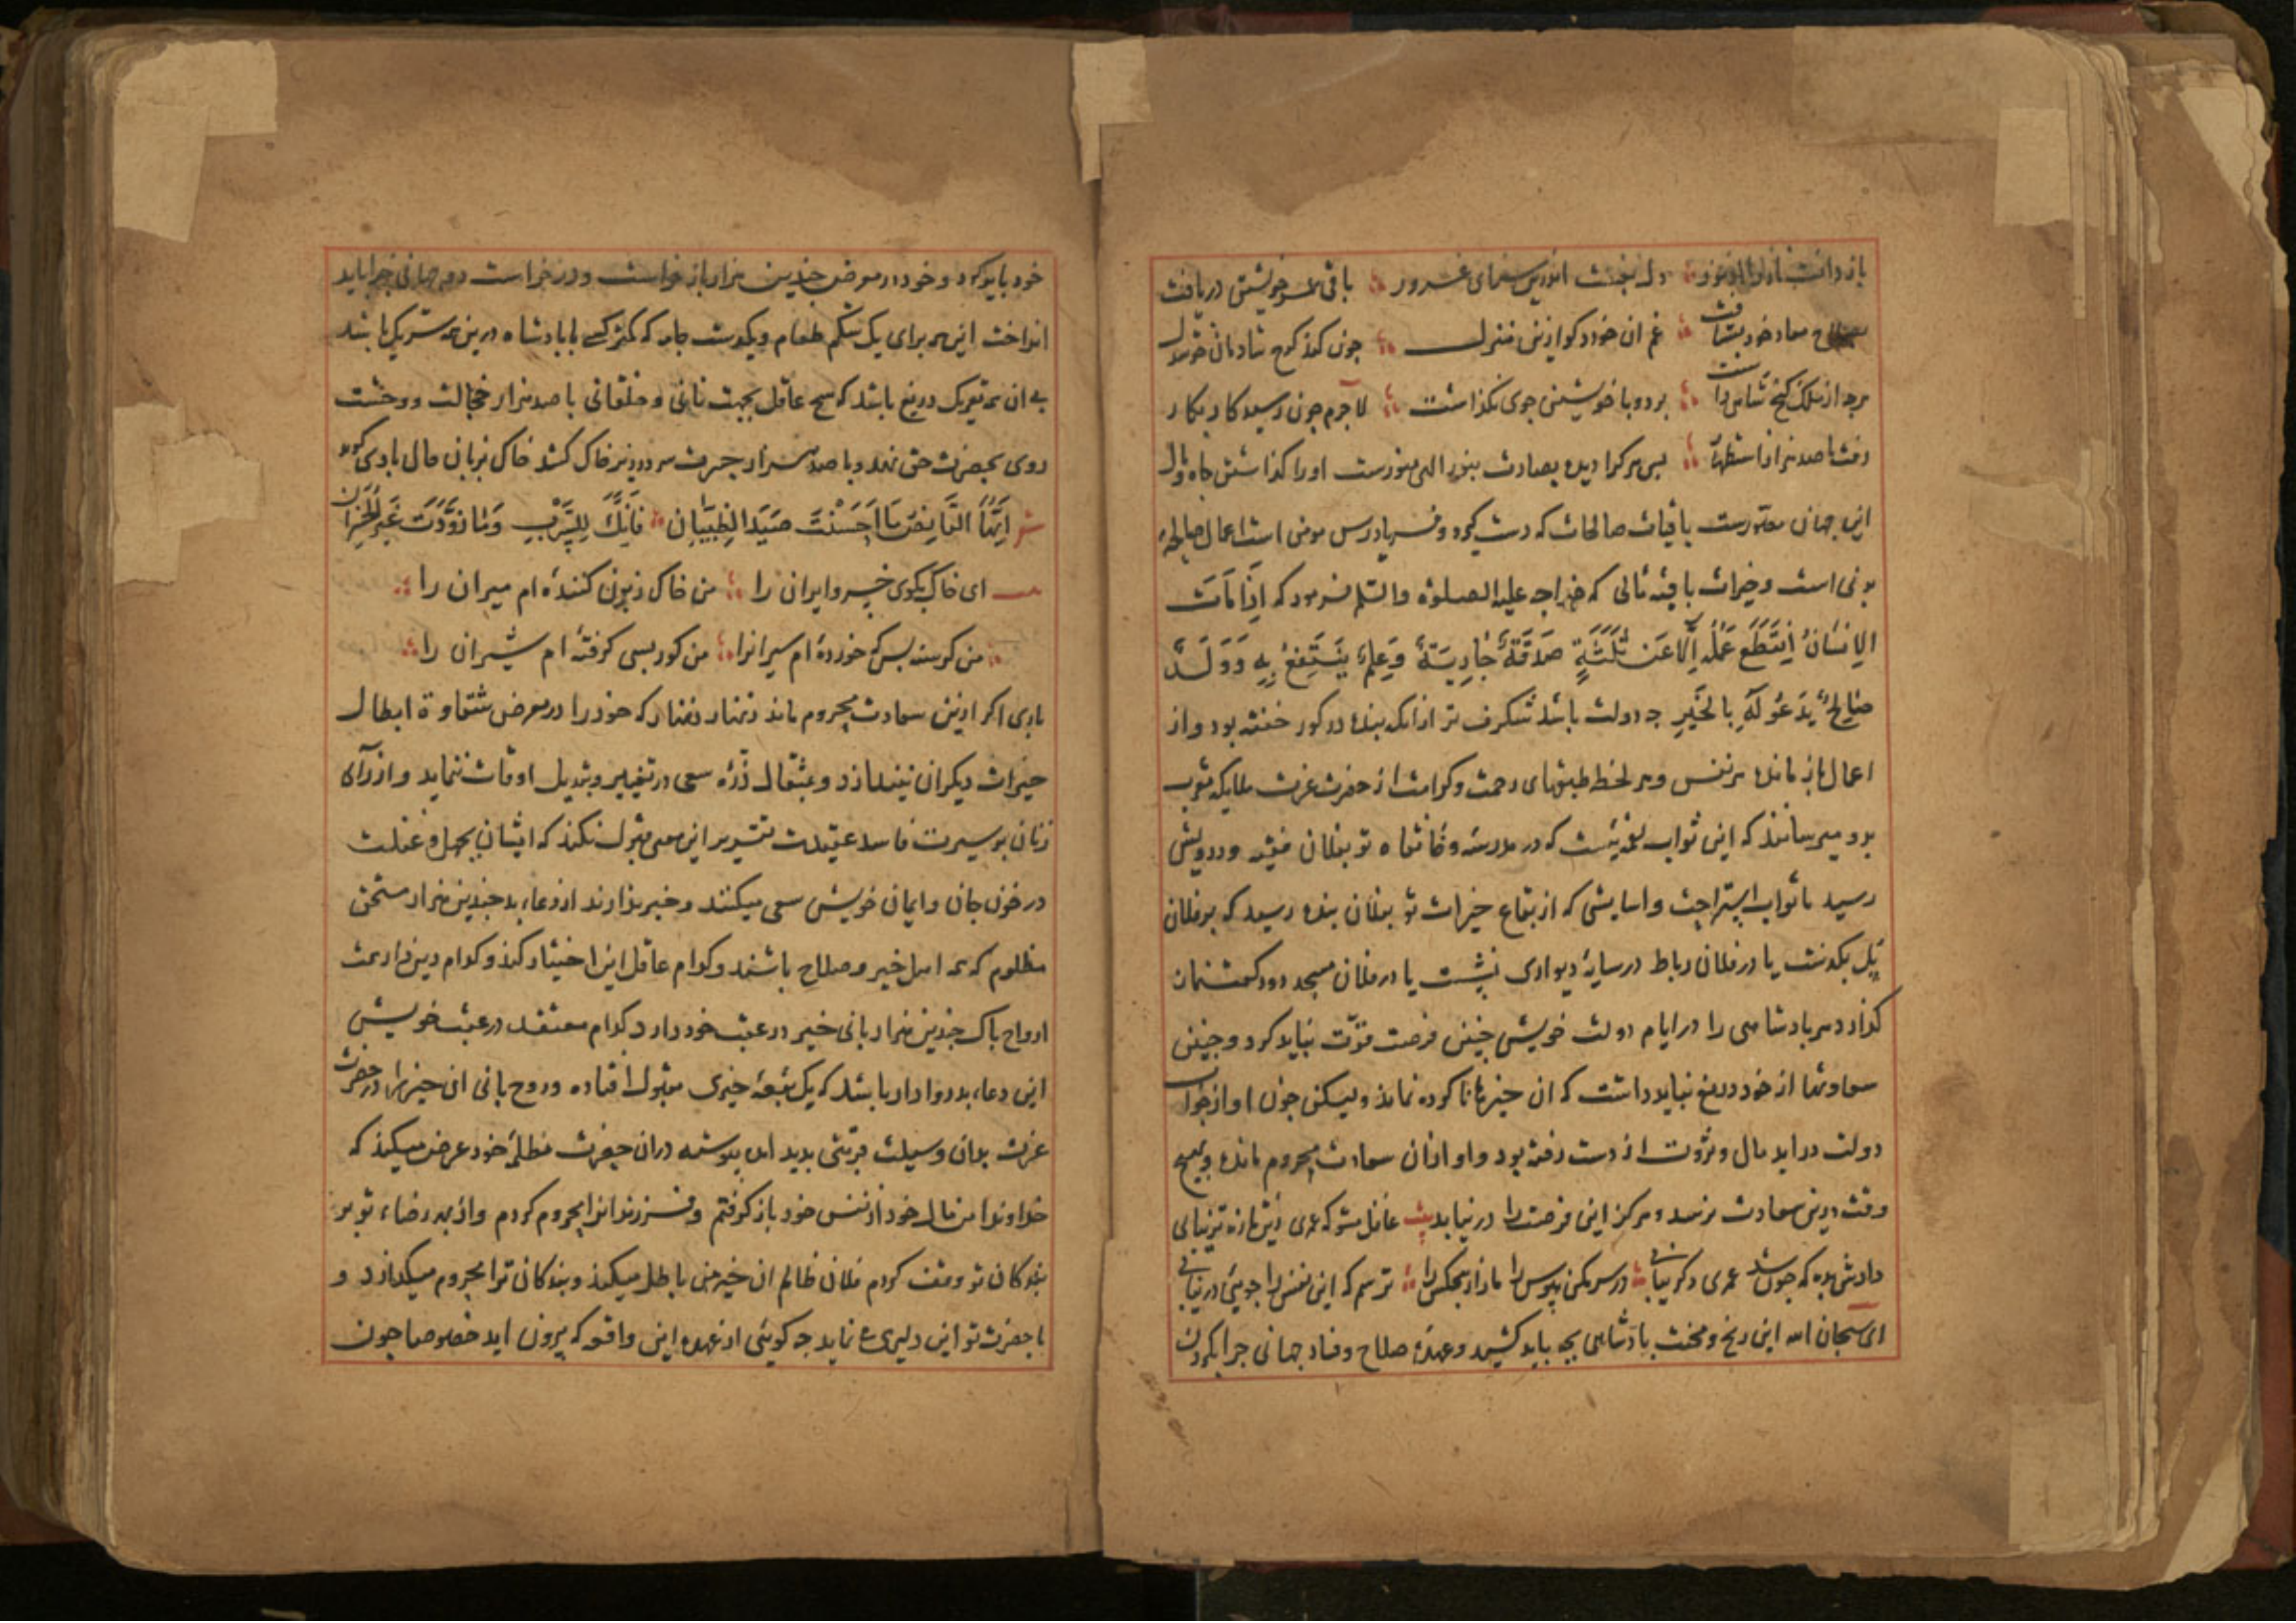 باز دانست دل ببست اندرین سرای غرور باقی عمر خویشتن دریافت
معاد خود بشتافت غم ان خورد کو ازین منزل چون کند کوچ شادمان خوشدل
هرچه از ملک کنج شاهی داشت برد و با خویشتن جوی نگذاشت لاجرم چون رسید کار بکار
رفت با صد هزار استظهار بس هر کرا دیده بصارت بنور الهی منورست او را گذاشتن جاه و مال
این جهان مقتدرست باقیات صالحات که دست گیرد و فریادرس مومن است اعمال صالحه
بونی است و خیرات باقیه مالی که خواجه علیه الصلوة والسلم فرمود که اِذَا مَاتَ
الاِنسَانُ اِنْقَطَعَ عَمَلُه اِلّا عَن ثَلٰثَةٍ صَدَقَةٌ جَارِیَةٌ وَعِلمٌ یَنتَفِعُ بِهِ وَوَلَدٌ
صَالِحٌ یَدعُو لَهُ بِالخَیرِ چه دولت باشد شکرف تر از انکه بنده در کور خفته بود و از
اعمال باز مانده هر نفس و هر لحظه طبقهای رحمت و کرامت از حضرت عزت ملایکه مقرب
بدو میرسانند که این ثواب لقمه‌یست که در مدرسه و خانقاه تو بفلان فقیه و درویش
رسید یا ثواب استراحت و اسایشی که از بقاع خیرات تو بفلان بنده رسید که بر فلان
پل بکذشت یا در فلان رباط در سایهٔ دیواری نشست یا در فلان مسجد دو رکعت نماز
کذارد هر بادشاهی را در ایام دولت خویش چنین فرصت فوّت نباید کرد و چنین
سعادتها از خود دریغ نباید داشت که ان خیرها ناکرده نماند ولیکن چون او از خواب
دولت دراید مال و ثروت از دست رفته بود و او ازان سعادت محروم مانده و بهیچ
وقت درین سعادت نرسد و هرکز این فرصت را در نیابد بیت غافل مشو که عمری زین تازه تر نیابی
دادش بده که چون شد عمری دکر نیابی در سر مکن بهوس را تا زار هیچکس را ترسم که این نفس را جویی و در نیابی
ای سبحان الله این رنج و محنت بادشاهی بچه باید کشید و عهدهٔ صلاح و فساد جهانی چرا بکردن
خود باید کرد و خود در معرض چندین هزار باز خواست و درخواست دو جهانی چرا باید
انداخت این همه برای یک شکم طعام و یکدست جامه که کمتر کسی با بادشاه درین همه شریک باشد
بی ان همه تعریک دریغ باشد که هیچ عاقل بجهت نانی و خلقانی با صد هزار خجالت و وحشت
روی بحضرت حق نهد و با صد هزار حسرت سر در زیر خاک کشد خاک بزبان حال با وی کوید
شعر اَیُّهَا القَانِصُ مَا اَحسَنْتَ صَیدَ الظَّبیَاتِ فَاتَکَ السِّربُ وَمَا زُوِّدتَ غَیرَ الحَسَرَاتِ
ای خاک بکوی خسرو ایران را من خاک زبون کننده ام میران را
من کرسنه بس که خورده ام سیرانرا من کور بسی کرفته ام شیران را
باری اکر ازین سعادت محروم ماند زنهار زنهار که خود را در معرض شقاوة ابطال
خیرات دیکران نیندازد و بمثقال ذرّه سعی در تغییر و تبدیل اوقات ننماید و از رای
زنان بدسیرت فاسد عقیدت تقریر این معنی قبول نکند که ایشان بجهل و غفلت
در خون جان و ایمان خویش سعی میکنند و خبر ندارند از دعاء بد چندین هزار مستحق
مظلوم که همه اهل خیر و صلاح باشند و کدام عاقل این اختیار کند و کدام دین‌دار همت
ارواح باک چندین هزار بانی خیر در عقب خود دارد کدام معتقد در عقب خویش
این دعاء بد روا دارد باشد که یک بقعهٔ خیری مقبول افتاده و روح بانی ان خیر را در حضرت
عزت بدان وسیلت قربتی بدید امد بیوسته دران حضرت مظلمهٔ خود عرض میکند که
خداوندا من مال خود از نفس خود باز کرفتم و فرزندانرا محروم کردم و از بهر رضاء تو بر
بندکان تو وقف کردم فلان ظالم ان خیر منی باطل میکند و بندکان ترا محروم میکذارد و
با حضرت تو این دلیری می نماید چه کویئی از عهده این واقعه که بیرون اید خصوصا چون